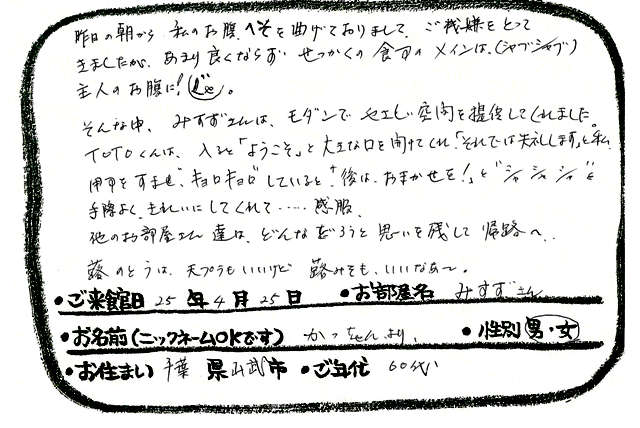 昨日の朝から 私のお腹 へそを曲げておりまして、ご機嫌をとって
きましたが、あまり良くならず せっかくの食事のメインは、(シャブシャブ)
主人のお腹に!
そんな中、みすずさんは、モダンで 空間を提供してくれました。
TOTOくんは、入ると「ようこそ」と大きな口を開けてくれ、「それでは失礼します」と私
用事をすませ、キョロキョロしていると、「後は、おまかせを!」と"シャシャシャ"と
手際よく、きれいにしてくれて……感服
他のお部屋さん達は、どんなだろうと思いを残して帰路へ、
蕗のとうは、天プラもいいけど 蕗みそも、いいなあ〜。
•ご来館日 25 年 4 月 25 日 •お部屋名 みすずさん
•お名前(ニックネームOKです) かっちゃんより、 •性別 男・女
•お住まい 千葉 県 山武 市 •ご年代 60代